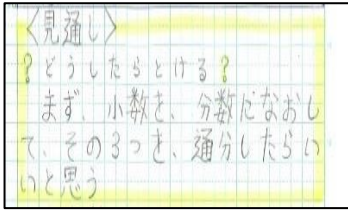 〈見通し〉
?どうしたらとける?
まず、小数を、分数になおし
て、その3つを、通分したらい
いと思う